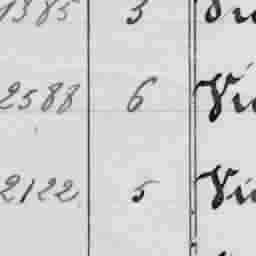 1385 3 Vi
2588 6 Vi
2122 5 Vi